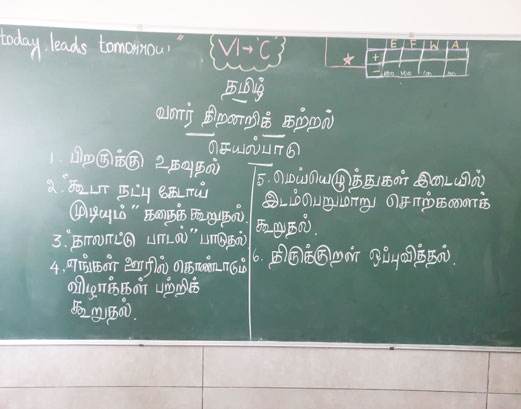 today, leads tomorrow"
VI → 'C'
E F W A
+
-
தமிழ்
வளர் திறனறிக் கற்றல்
செயல்பாடு
1. பிறருக்கு உதவுதல்
2. "கூடா நட்பு கேடாய்
முடியும்" கதைக் கூறுதல்.
3. "தாலாட்டு பாடல்" பாடுதல்
4. எங்கள் ஊரில் கொண்டாடும்
விழாக்கள் பற்றிக்
கூறுதல்.
5. மெய்யெழுத்துகள் இடையில்
இடம்பெறுமாறு சொற்களைக்
கூறுதல்.
6. திருக்குறள் ஒப்புவித்தல்.